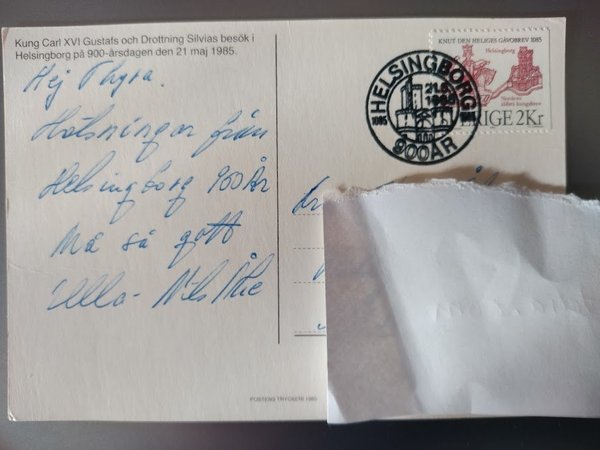 Kung Carl XVI Gustafs och Drottning Silvias besök i
Helsingborg på 900-årsdagen den 21 maj 1985.
Hej Thyra.
Hälsningar från
Helsingborg 900 År
Må så gott
Ulla - Nils Åke
KNUT DEN HELIGES GÅVOBREV 1085
Helsingborg
Nordens
äldsta kungabrev
SVERIGE 2Kr
HELSINGBORG
900 ÅR
POSTENS TRYCKERI 1985